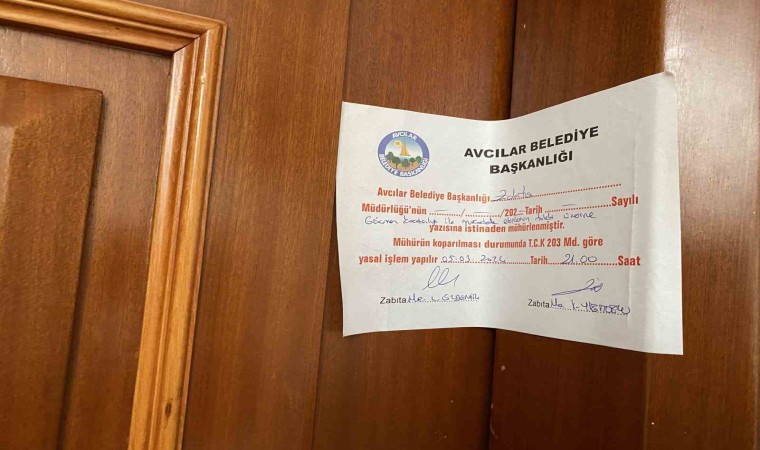 AVCILAR
BELEDİYE BAŞKANLIĞI
AVCILAR BELEDİYE
BAŞKANLIĞI
Avcılar Belediye Başkanlığı Zabıta
Müdürlüğü'nün ....../....../202...Tarih ............Sayılı
Göçmen Kaçakçılığı ile mücadele ekiplerinin talebi üzerine
yazısına istinaden mühürlenmiştir.
Mühürün koparılması durumunda T.C.K 203 Md. göre
yasal işlem yapılır 05.03.2024 Tarih 21.00 Saat
Zabıta Me.
Zabıta Me.